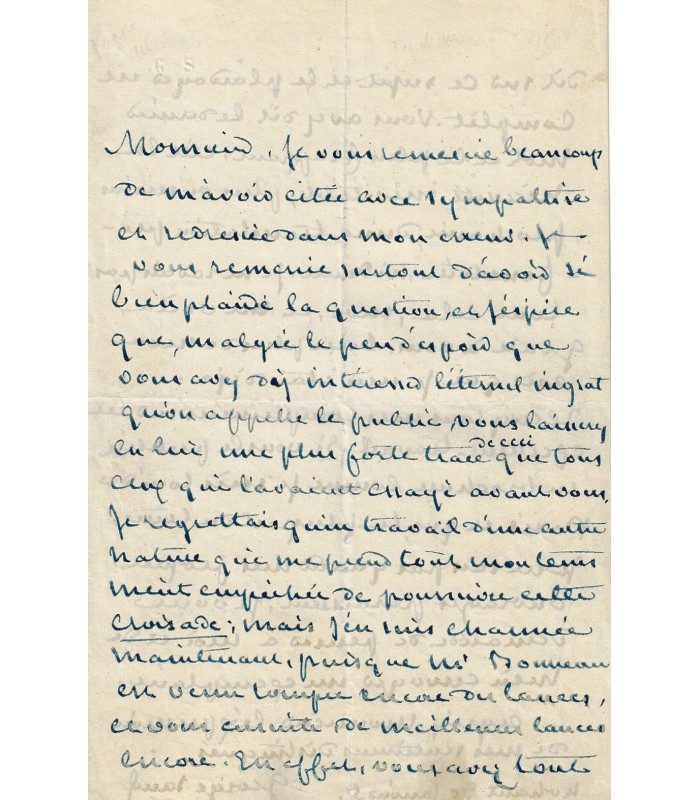 Monsieur, je vous remercie beaucoup
de m'avoir citée avec sympathie
et redressée dans mon erreur. Je
vous remercie surtout d'avoir si
bien plaidé la question, et j'espère
que, malgré le peu d'espoir que
vous avez d'y intéresser l'éternel ingrat
qu'on appelle le public, vous laisserez
en lui une plus forte trace de ceci que tous
ceux qui l'avaient essayé avant vous.
Je regrettais qu'un travail d'une autre
nature qui me prend tout mon tems
m'eut empêchée de poursuivre cette
croisade; mais j'en suis charmée
maintenant, puisque Mr Bonneau
est venu rompre encore des lances,
et vous ensuite de meilleures lances
encore. En effet, vous avez tout